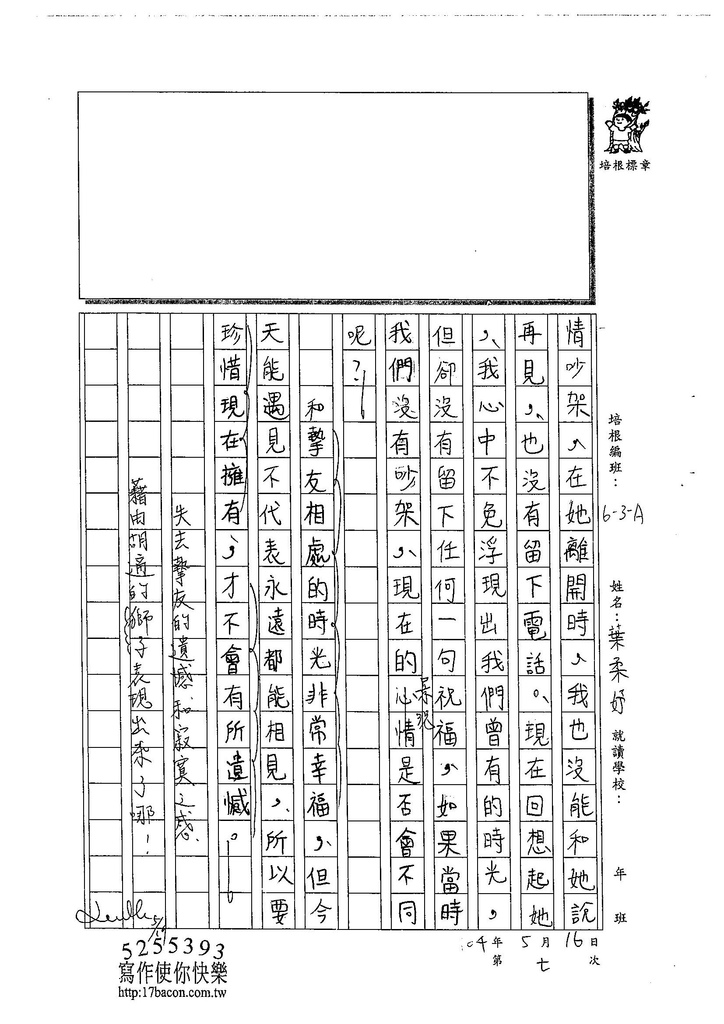 培根標章
培根編班：6-3-A
姓名：葉柔妤
就讀學校：
年 班
104年5月16日
第七次
情吵架，在她離開時，我也沒能和她說
再見，也沒有留下電話。現在回想起她
，我心中不免浮現出我們曾有的時光，
但卻沒有留下任何一句祝福，如果當時
我們沒有吵架，現在的心情是否會不同
呢？
和摯友相處的時光非常幸福，但今
天能遇見不代表永遠都能相見，所以要
珍惜現在擁有，才不會有所遺憾。
失去摯友的遺憾和寂寞之感，
藉由胡適的獅子表現出來了哪！
5/19
5255393
寫作使你快樂
http:17bacon.com.tw